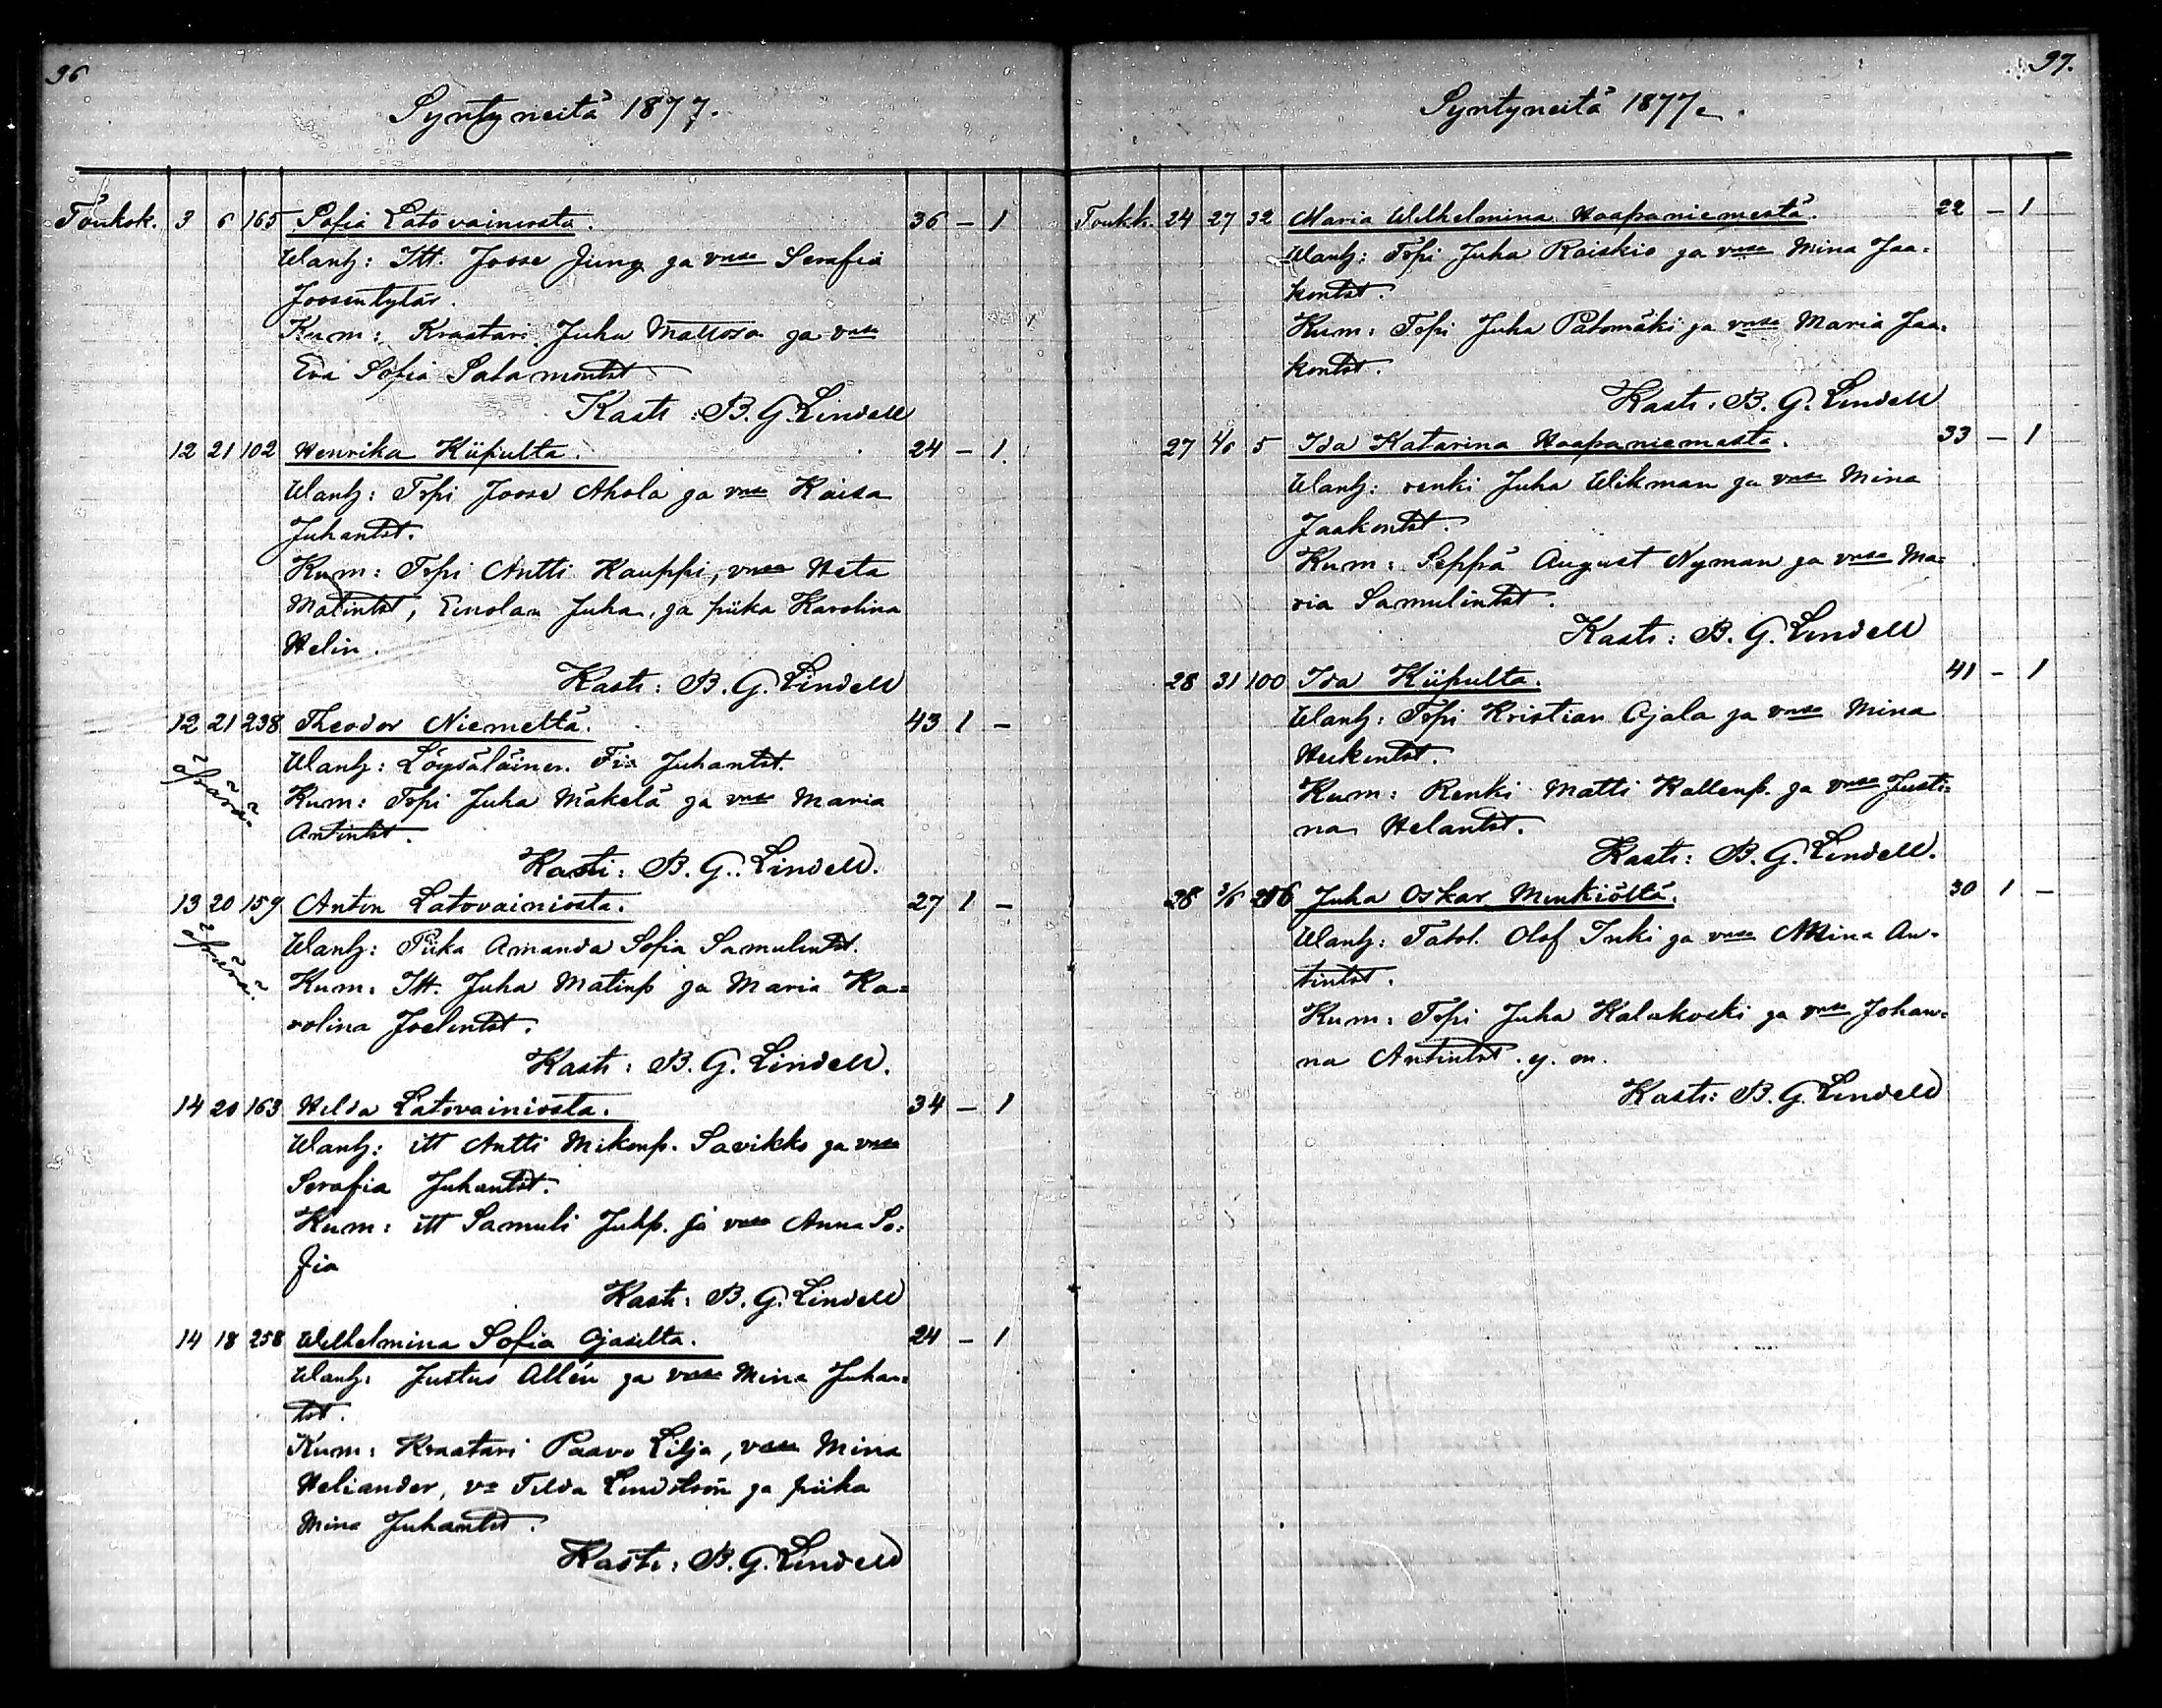 96
Syntyneitä 1877.
Toukok. 3 6 165 Sofia Latovainiosta. 36 – 1
Wanh: Itt. Joose Jung ja vmsa Serafia
Joosentytär.
Kum: Kraatari Juha Mattosa ja vmsa
Eva Sofia Salamontst
Kasti: B. G. Lindell
12 21 102 Henrika Kiipulta. 24 – 1.
Wanh: Trpi Joose Ahola ja vmsa Kaisa
Juhantst.
Kum: Trpi Antti Kauppi, vmsa Heta
Matintst, Einolan Juha, ja piika Karolina
Helin.
Kasti: B. G. Lindell
12 21 238 Theodor Niemeltä. 43 1 –
Äpärä.
Wanh: Löysäläinen Fia Juhantst.
Kum: Trpi Juha Mäkelä ja vmsa Maria
Antintst.
Kasti: B. G. Lindell.
13 20 159 Anton Latovainiosta. 27 1 –
Äpärä.
Wanh: Piika Amanda Sofia Samulintst.
Kum: Itt. Juha Matinp ja Maria Ka=
rolina Joelintst.
Kasti: B. G. Lindell.
14 20 163 Hilda Latovainiosta. 34 – 1
Wanh: itt Antti Mikonp. Savikko ja vmsa
Serafia Juhantst.
Kum: itt Samuli Juhp. ja vmsa Anna So=
fia
Kasti: B. G. Lindell
14 18 258 Wilhelmina Sofia Ojasilta. 24 – 1
Wanh: Justus Allén ja vmsa Mina Juhan=
tst.
Kum: Kraatari Paavo Lilja, vmsa Mina
Heliander, va Tilda Lindström ja piika
Mina Juhantst.
Kasti: B. G. Lindell
97.
Syntyneitä 1877
Toukk. 24 27 32 Maria Wilhelmina Haapaniemestä. 22 – 1
Wanh: Trpi Juha Raiskio ja vmsa Mina Jaa=
kontst.
Kum: Trpi Juha Patomäki ja vmsa Maria Jaa=
kontst.
Kasti: B. G. Lindell
27 4/6 5 Ida Katarina Haapaniemestä. 33 – 1
Wanh: renki Juha Wikman ja vmsa Mina
Jaakontst.
Kum: Seppä August Nyman ja vmsa Ma=
ria Samulintst.
Kasti: B. G. Lindell
28 31 100 Ida Kiipulta. 41 – 1
Wanh: Trpi Kristian Ojala ja vmsa Mina
Heikintst.
Kum: Renki Matti Kallenp. ja vmsa Justi=
na Helantst.
Kasti: B. G. Lindell.
28 3/6 Juha Oskar Minkiöltä. 30 1 –
Wanh: Talol. Olof Inki ja vmsa Mina An=
tintst.
Kum: Trpi Juha Kalakoski ja vmsa Johan=
na Antintst. y. m.
Kasti: B. G. Lindell